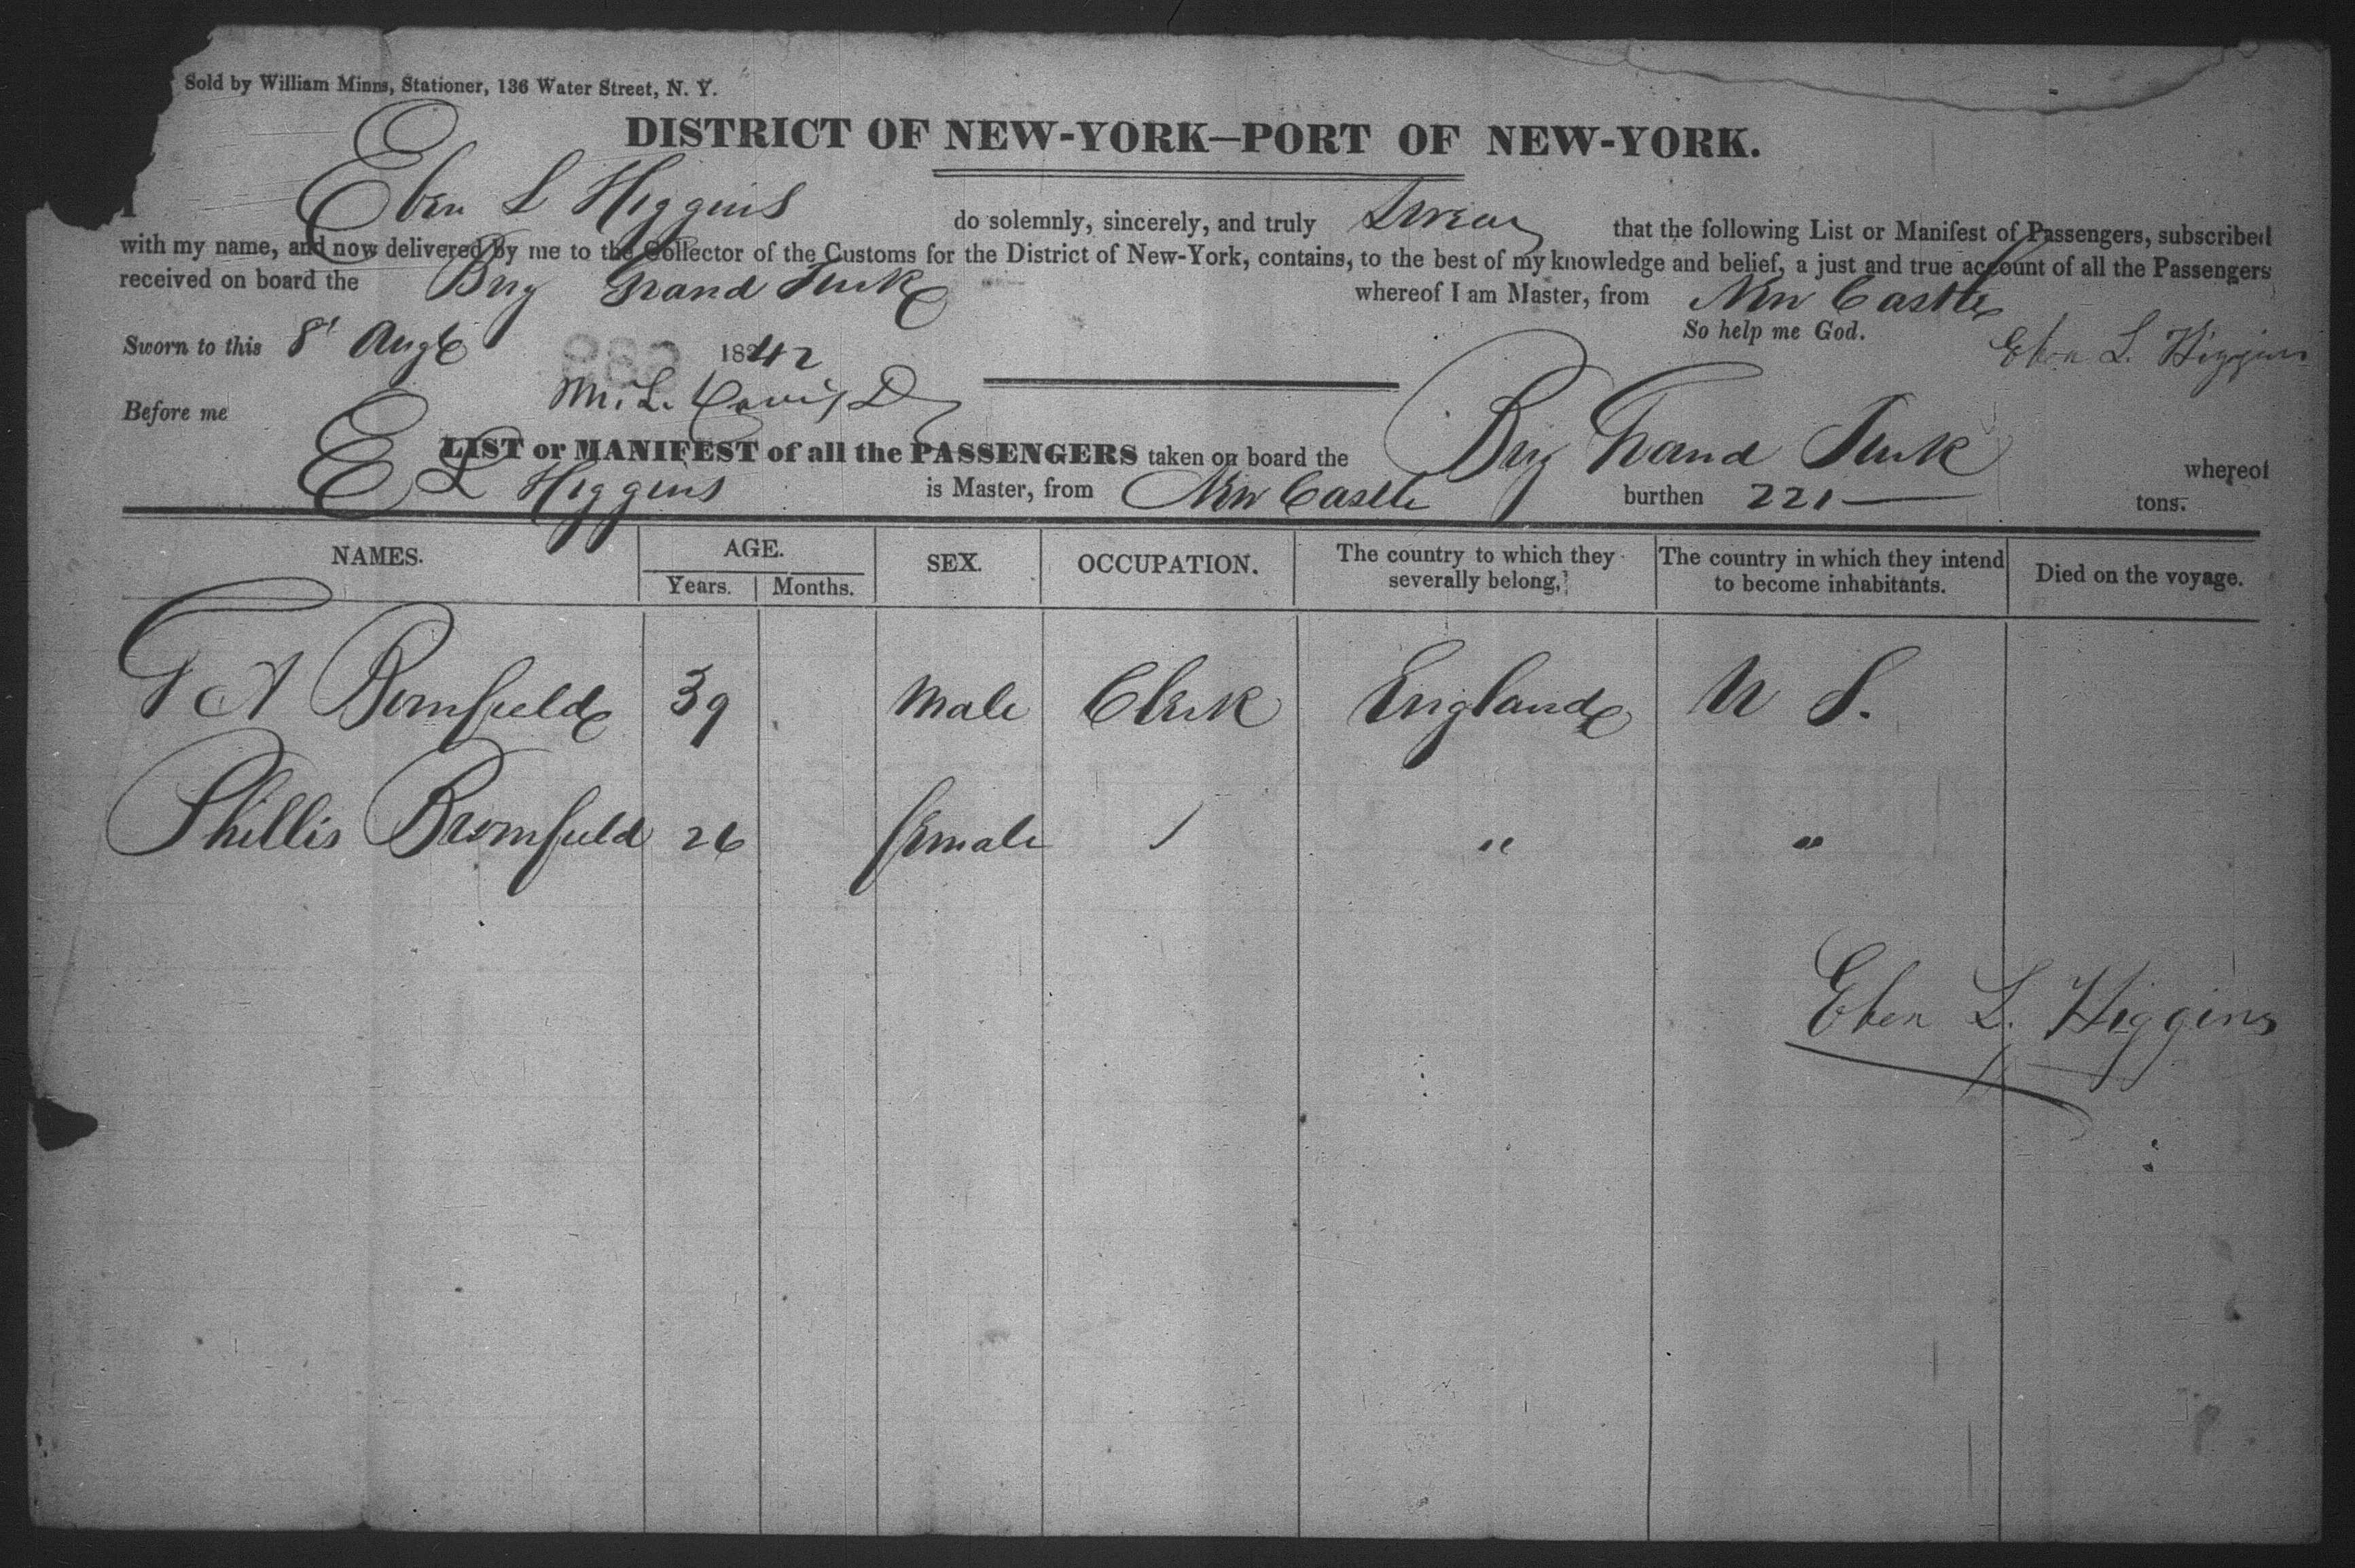 Sold by William Minns, Stationer, 136 Water Street, N. Y.
DISTRICT OF NEW-YORK—PORT OF NEW-YORK.
I Eben L Higgins do solemnly, sincerely, and truly Swear that the following List or Manifest of Passengers, subscribed
with my name, and now delivered by me to the Collector of the Customs for the District of New-York, contains, to the best of my knowledge and belief, a just and true account of all the Passengers
received on board the Brig Grand Turk whereof I am Master, from New Castle
So help me God. Eben L. Higgins
Sworn to this 8t Aug 1842
Before me M. L.
LIST or MANIFEST of all the PASSENGERS taken on board the Brig Grand Turk whereof
E L Higgins is Master, from New Castle burthen 221 tons.
NAMES. AGE. SEX. OCCUPATION. The country to which they severally belong. The country in which they intend to become inhabitants. Died on the voyage.
Years. Months.
A Bromfield 39 Male Clerk England U S.
Phillis Bromfield 26 female / " "
Eben L. Higgins